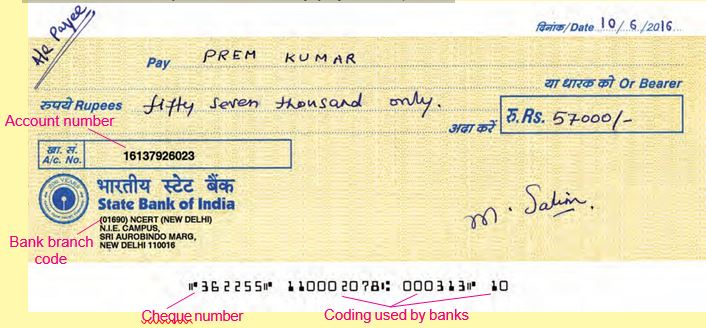 A/c Payee
दिनांक/Date 10/6/2016
Pay PREM KUMAR
या धारक को Or Bearer
रुपये Rupees fifty seven thousand only.
अदा करें रु. Rs. 57000/-
Account number
खा. सं.
A/c. No. 16137926023
भारतीय स्टेट बैंक
State Bank of India
(01690) NCERT (NEW DELHI)
N.I.E. CAMPUS,
SRI AUROBINDO MARG,
NEW DELHI 110016
M. Salim.
Bank branch
code
⑈362255⑈ 110002078⑆ 000313⑈ 10
Cheque number
Coding used by banks